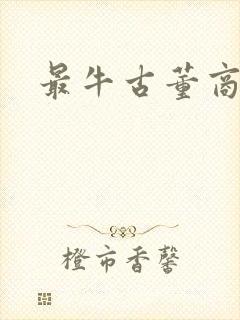 最牛古董商
橙市香馨